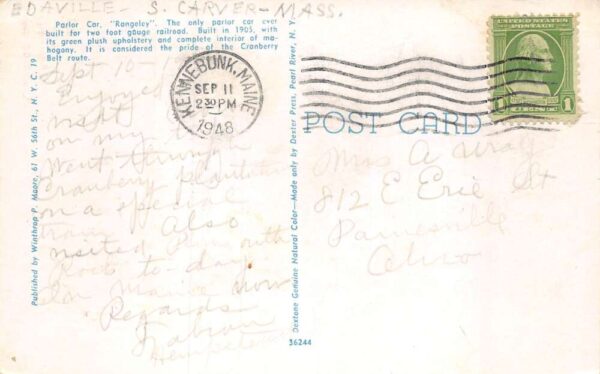 EDAVILLE - S. CARVER - MASS.
Parlor Car, "Rangeley". The only parlor car ever
built for two foot gauge railroad. Built in 1905, with
its green plush upholstery and complete interior of ma-
hogany. It is considered the pride of the Cranberry
Belt route.
Sept 10
Enjoyed
visit
on my
Went through
Cranberry
on a special
train Also
visited Plymouth
Rock to-day
In Maine now
Regards
Published by Winthrop P. Moore, 61 W. 56th St., N. Y. C. 19
Dextone Genuine Natural Color—Made only by Dexter Press, Pearl River, N. Y.
36244
KENNEBUNK, MAINE
SEP 11
2 30 PM
1948
UNITED STATES
POSTAGE
1 1
POST CARD
Mrs A Wray
812 E Erie St
Painesville
Ohio